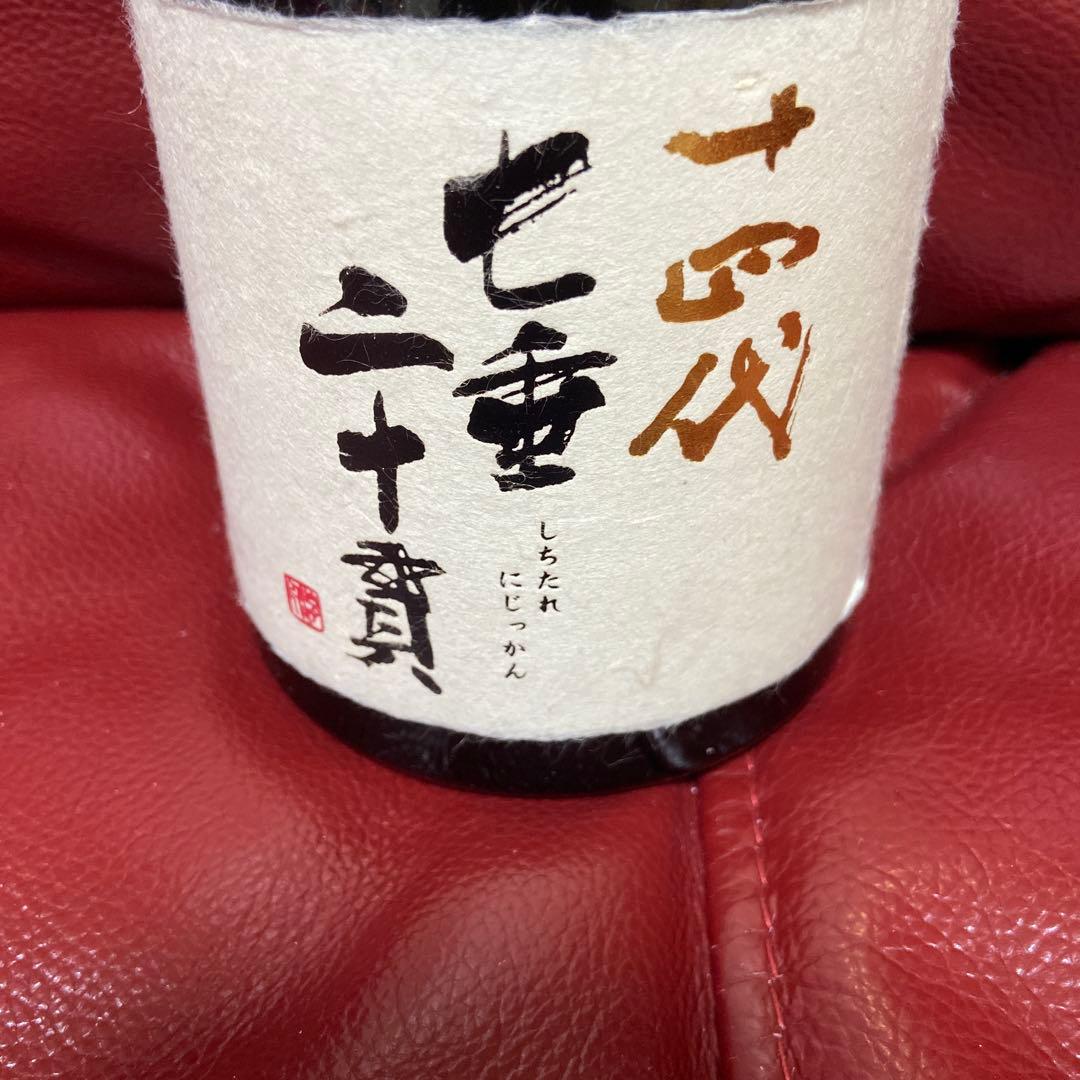 十四代
七垂
二十貫
しちたれ
にじっかん